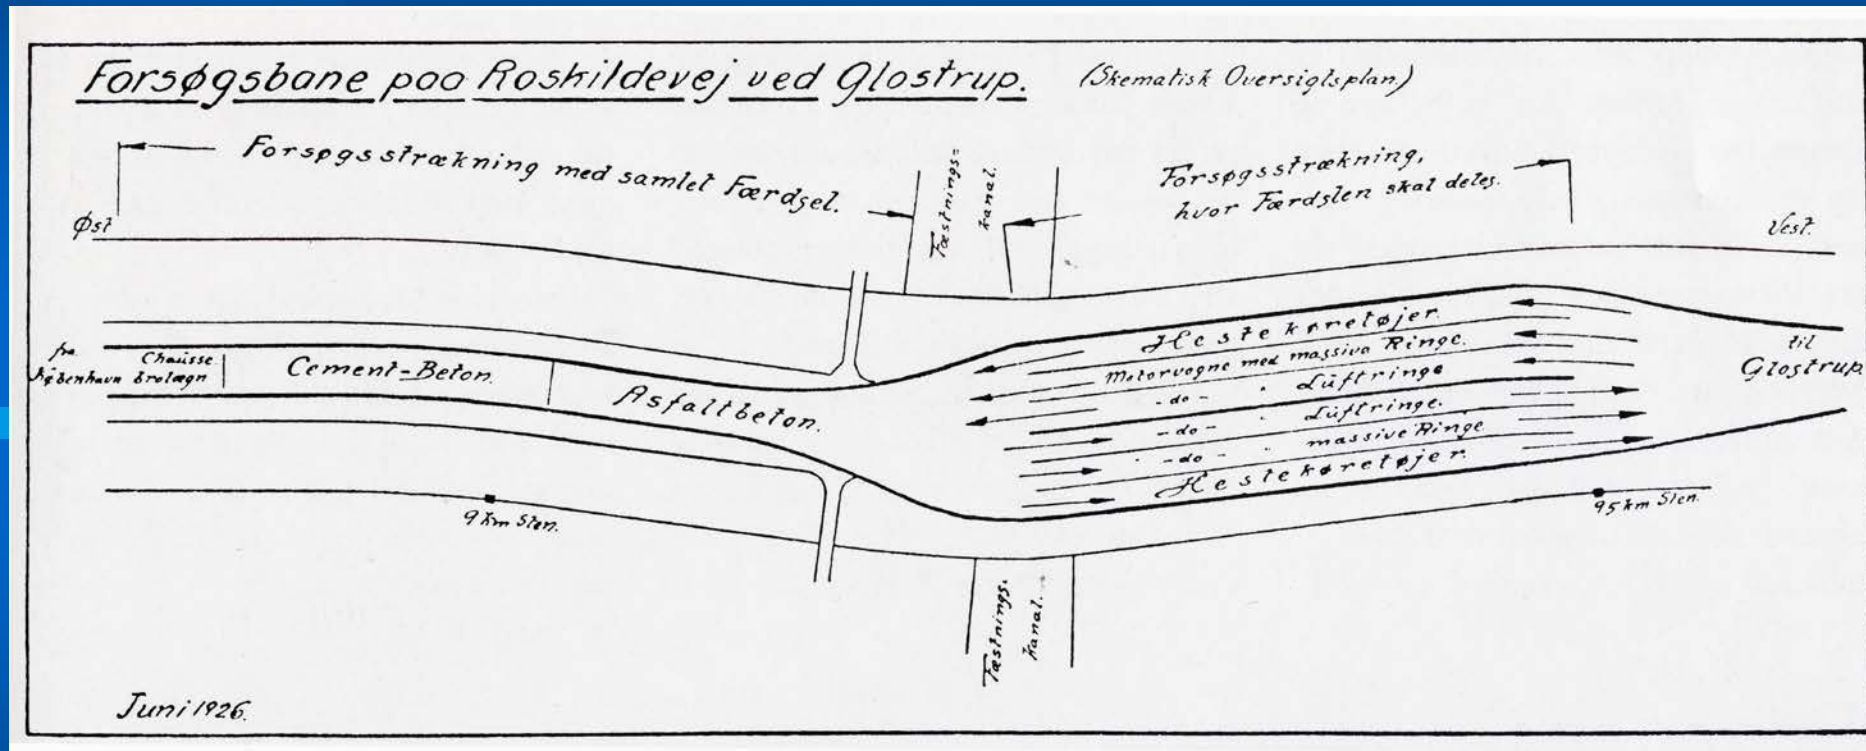 Forsøgsbane paa Roskildevej ved Glostrup. (Skematisk Oversigtsplan.)
Forsøgsstrækning med samlet Færdsel.
Fæstnings=
kanal.
Forsøgsstrækning,
hvor Færdslen skal deles.
Øst
Vest.
fra
København
Chausse
brolægn
Cement=Beton.
Asfaltbeton.
Hestekøretøjer.
Motorvogne med massive Ringe.
- do - " Luftringe
- do - " Luftringe.
- do - " massive Ringe
Hestekøretøjer.
til
Glostrup.
9 km Sten.
95 km Sten.
Fæstnings.
kanal.
Juni 1926.